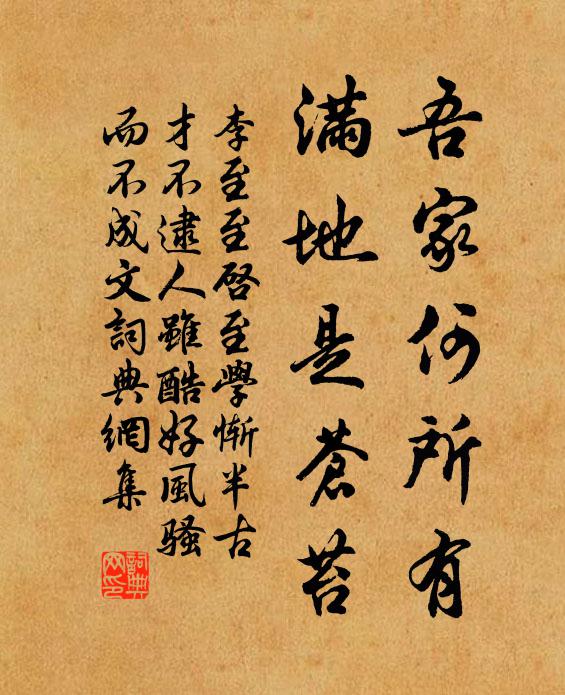 吾家何所有
滿地是蒼苔
李至至啓至學慚半古
才不逮人雖酷好風騷
而不成文詞典網集
詞典
网印